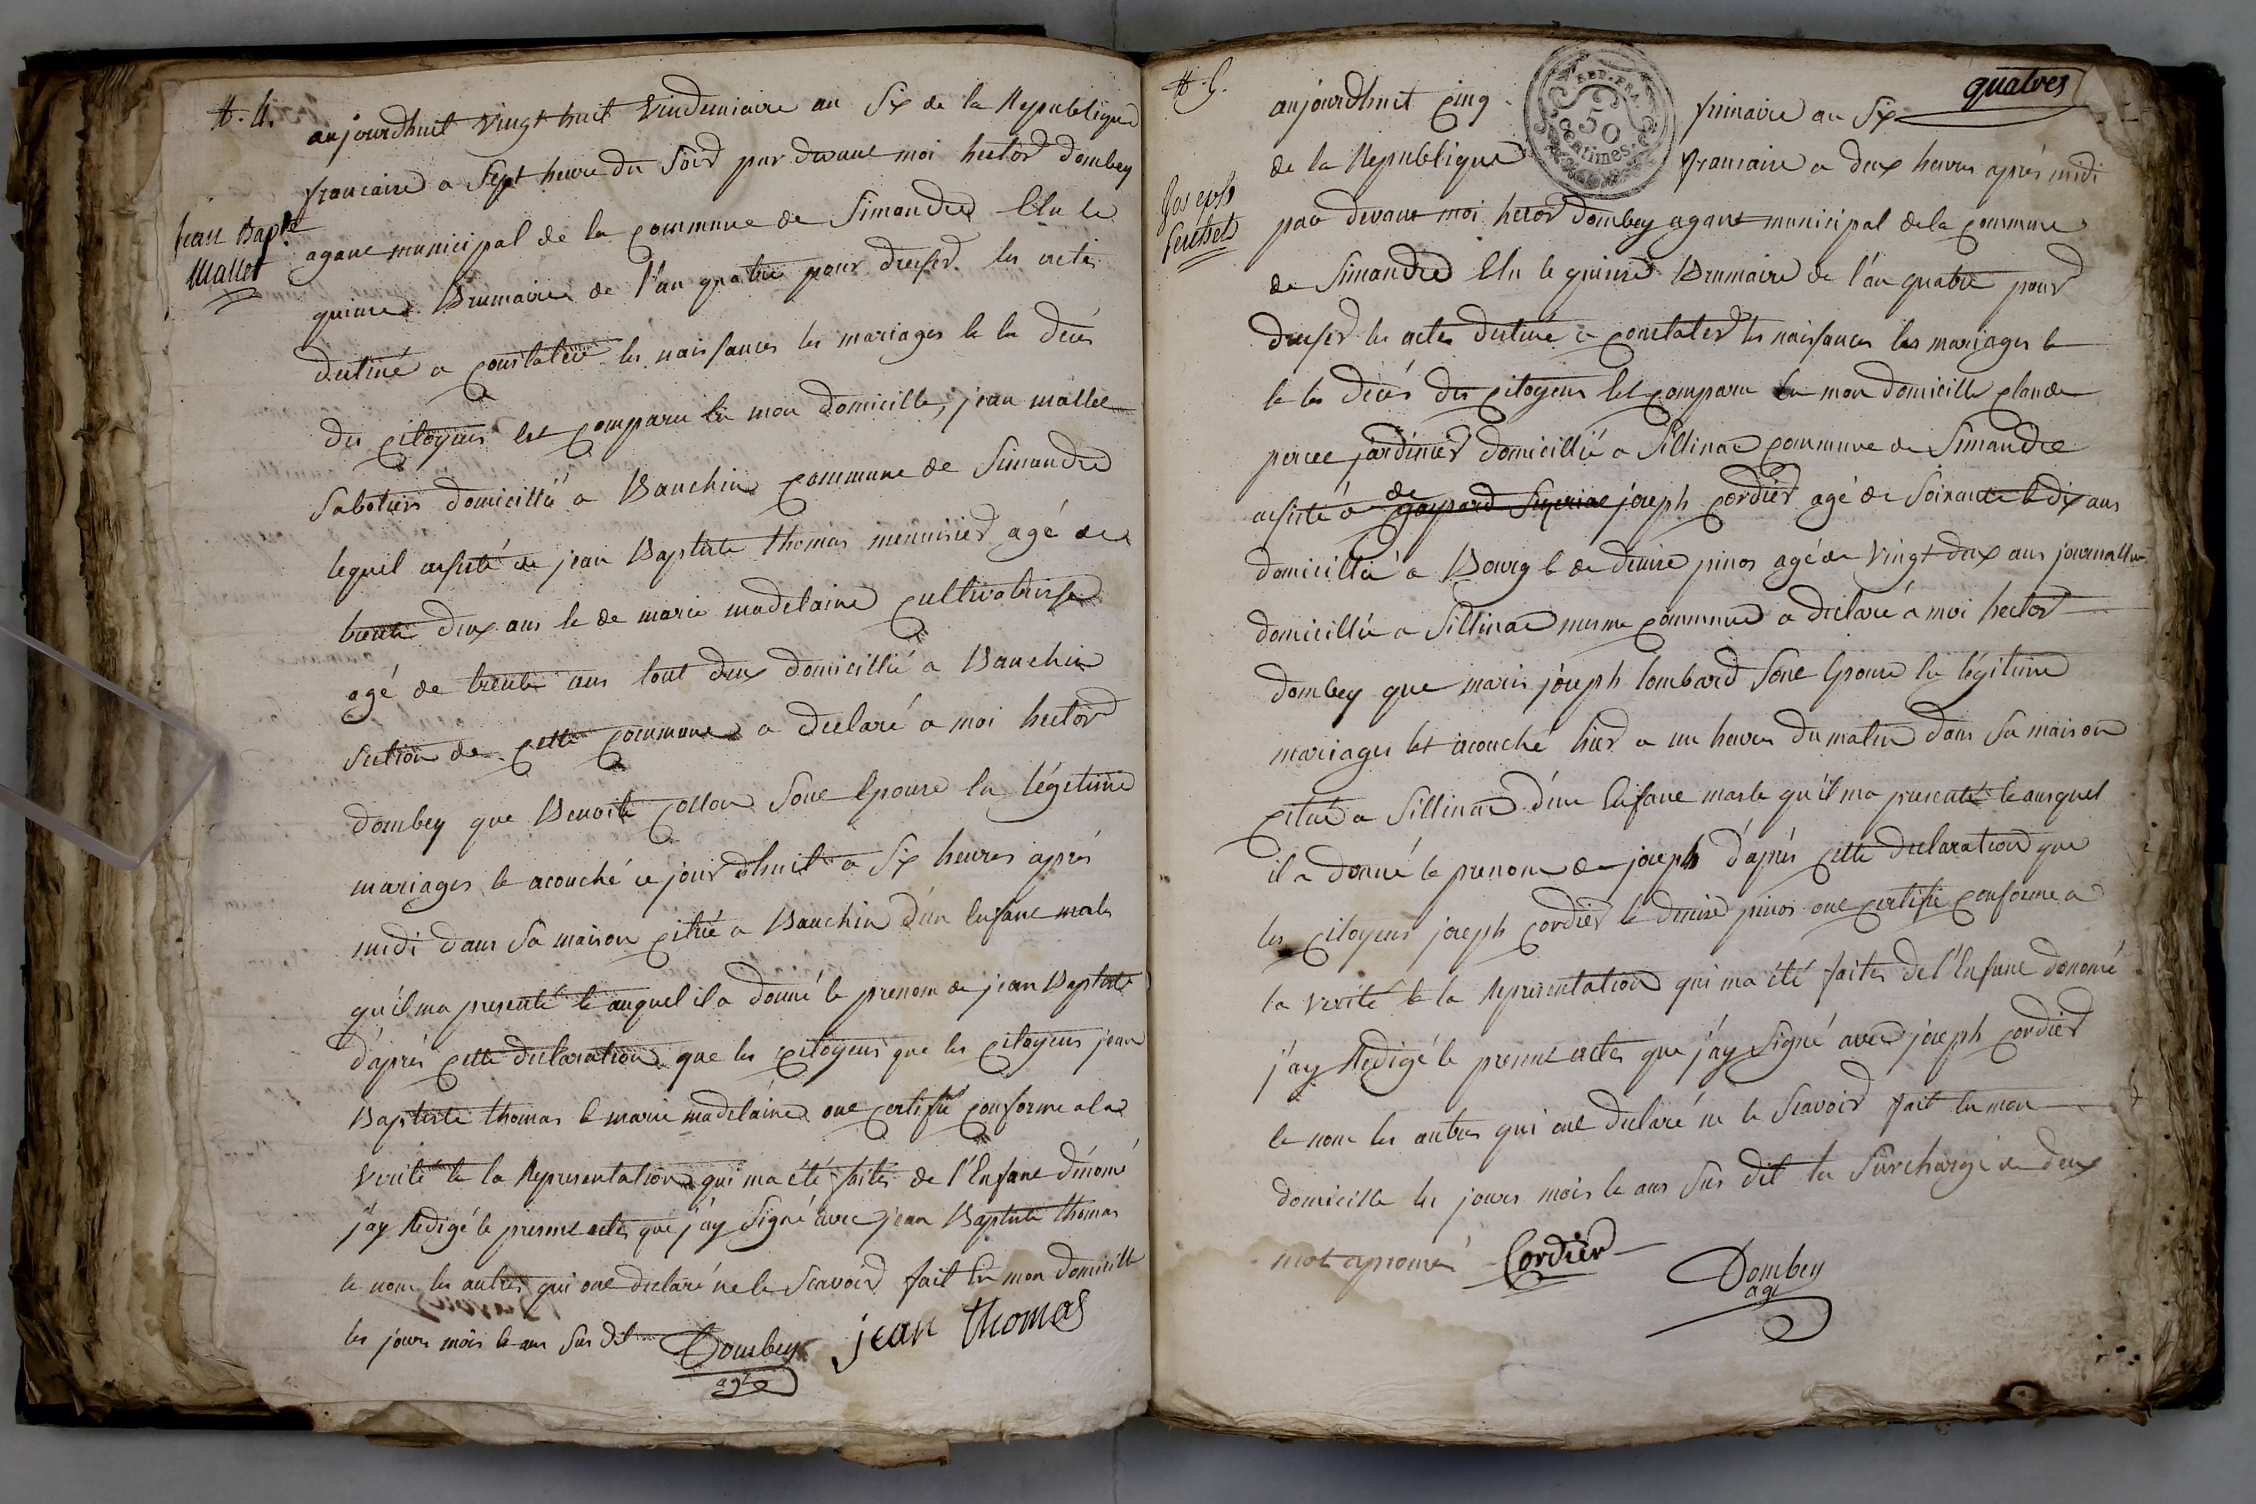 #. 4.
aujourdhuit vingt huit Vindemiaire an Six de la Republique
francaire a Sept heure du Soird par devant moi hector dombey
Jean Bapte
Mallet
agant municipal de la commune de Simandre Elu le
quinze Brumaire de l'an quatre pour dresser les actes
destiné a constater les naissances les mariages et les décés
des citoyens est comparu En mon domicille, jean mallet
Sabotiers domicillié a Banchin commune de Simandre
lequel assisté de jean Baptiste thomas menuisier agé de
trente deux ans et de marie madelaine cultivatrisse
agé de trente ans tout deux domicillié a Banchin
Section de cette commune a declaré a moi hector
dombey que Benoite collon Sont Epouse En légitime
mariages et acouché ce jour dhuit a Six heures aprés
midi dans Sa maison citué a Banchin d'un Enfant male
qu'il ma presenté et auquel il a donné le prenom de jean Baptiste
d'aprés cette declaration que les citoyens que les citoyens jean
Baptiste thomas et marie madelaine ont certifié conforme a la
verité et la Representation qui ma été faites de l'Enfant dénomé
j'ay Redigé le present actes que j'ay Signé avec jean Baptiste thomas
et non les autres qui ont declaré ne le Scavoir fait En mon domicille
les jours mois et ans Sus dit Dombey jean thomas
agt
quatres
#. 5.
aujourdhuit cinq frimaire an Six
REP. FRA.
50
Centimes
de la Republique francaire a deux heures aprés midi
Joseph
par devant moi hector dombey agant municipal de la commune
de Simandre Elu le quinze Brumaire de l'an quatre pour
dresser les actes destiné a constater les naissances les mariages et
et les décés des citoyens Est comparu En mon domicille claude
jardinier domicillié a Sillinac commune de Simandre
de
assisté a gaspard joseph cordier agé de Soixante et dix ans
domicillié a Bourg et de denise pinos agé de vingt deux ans
domicillié a Sillinac mesme commune a declaré a moi hector
dombey que marie joseph lombard Sont Epouse En légitime
mariages Est acouché hier a une heures du matin dans Sa maison
citué a Sillinac d'un Enfant masle qu'il ma presenté et auquel
il a donné le prenom de joseph d'aprés cette declaration que
les citoyens joseph cordier et denise pinos ont certifié conforme a
la verité et la Representation qui ma été faites de l'Enfant dénomé
j'ay Redigé le present actes que j'ay Signé avec joseph cordier
et non les autres qui ont declaré ne le Scavoir fait En mon
domicille les jours mois et ans Sus dit la Surchargé de deux
mot aprouvés Cordier Dombey
agt